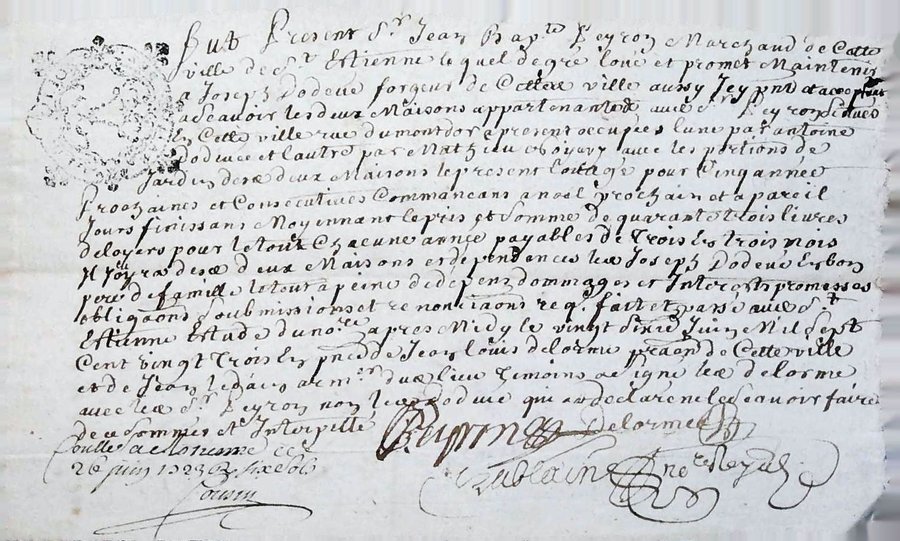 Fut Present Sr Jean Bapte Peyron Marchand de Cette
ville de St Estienne lequel de gré loué et promet Maintenir
a Joseph Dodeve forgeur de Cette ville aussy Icy pnt et acceptant
a Scavoir les deux Maisons appartenantes audt Sr Peyron Scitués
En Cette ville rue du montdor a present occupées lune par antoine
Doduce et lautre par Mathieu Boyary avec les portions de
Jardin desd deux Maisons le present Louage pour Cinq année
Prochaines et Consecutives Commancans a noël prochain et a pareil
Jours finissans Moyennant le pris et Somme de quarante trois livres
de loyers pour le tout Chacune année payables de Trois En trois mois
desd deux Maisons et dependences led Joseph Dodeve En bon
pere de famille le tout a peine de depens dommages et Interests promesses
obligaons Soubmissions et renonciaons reqs fait et passé aud St
Estienne Estude du nore apres Midy le vingt Sixe Juin Mil Sept
Cent vingt Trois En pnce de Jean Louis delorme praon de Cette ville
et de Jean armr dud lieu temoins Signe led delorme
avec led Sr Peyron non led Dodeve qui a declaré ne le Scavoir faire
de ce Sommes et Interpellé
Peyron Delorme
Collé a St Etienne ce
26 juin 1723 R six sols
Cousin
nore Royal